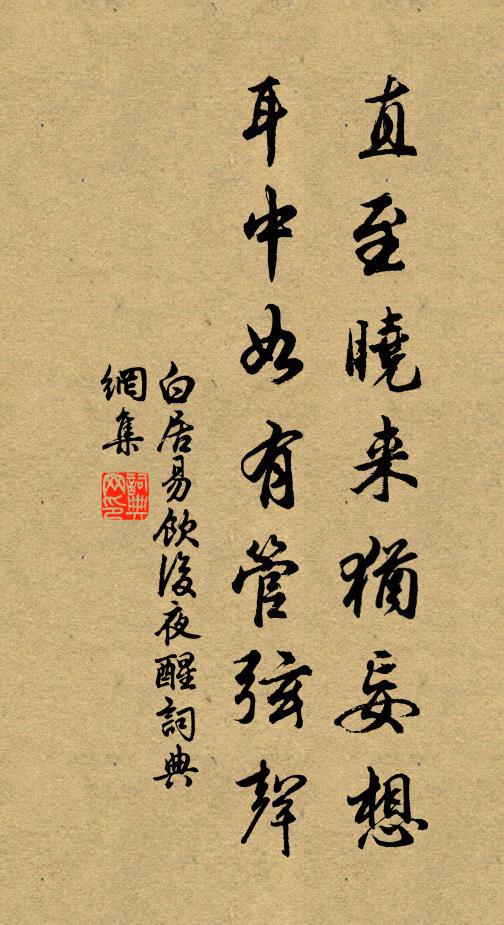 直至曉来猶妄想
耳中如有管弦聲
白居易飲後夜醒詞典
網集
詞典
网印